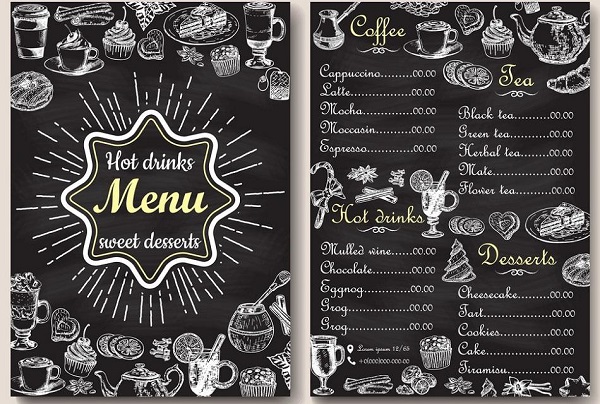 Hot drinks
Menu
sweet desserts
Coffee
Cappuccino.......00.00
Latte...............00.00
Mocha.............00.00
Moccasin..........00.00
Espresso...........00.00
Tea
Black tea..........00.00
Green tea..........00.00
Herbal tea........00.00
Mate................00.00
Flower tea........00.00
Hot drinks
Mulled wine....00.00
Chocolate.........00.00
Eggnog............00.00
Grog...............00.00
Grog...............00.00
Lorem ipsum 12/65
Desserts
Cheesecake.......00.00
Tart................00.00
Cookies............00.00
Cake...............00.00
Tiramisu..........00.00